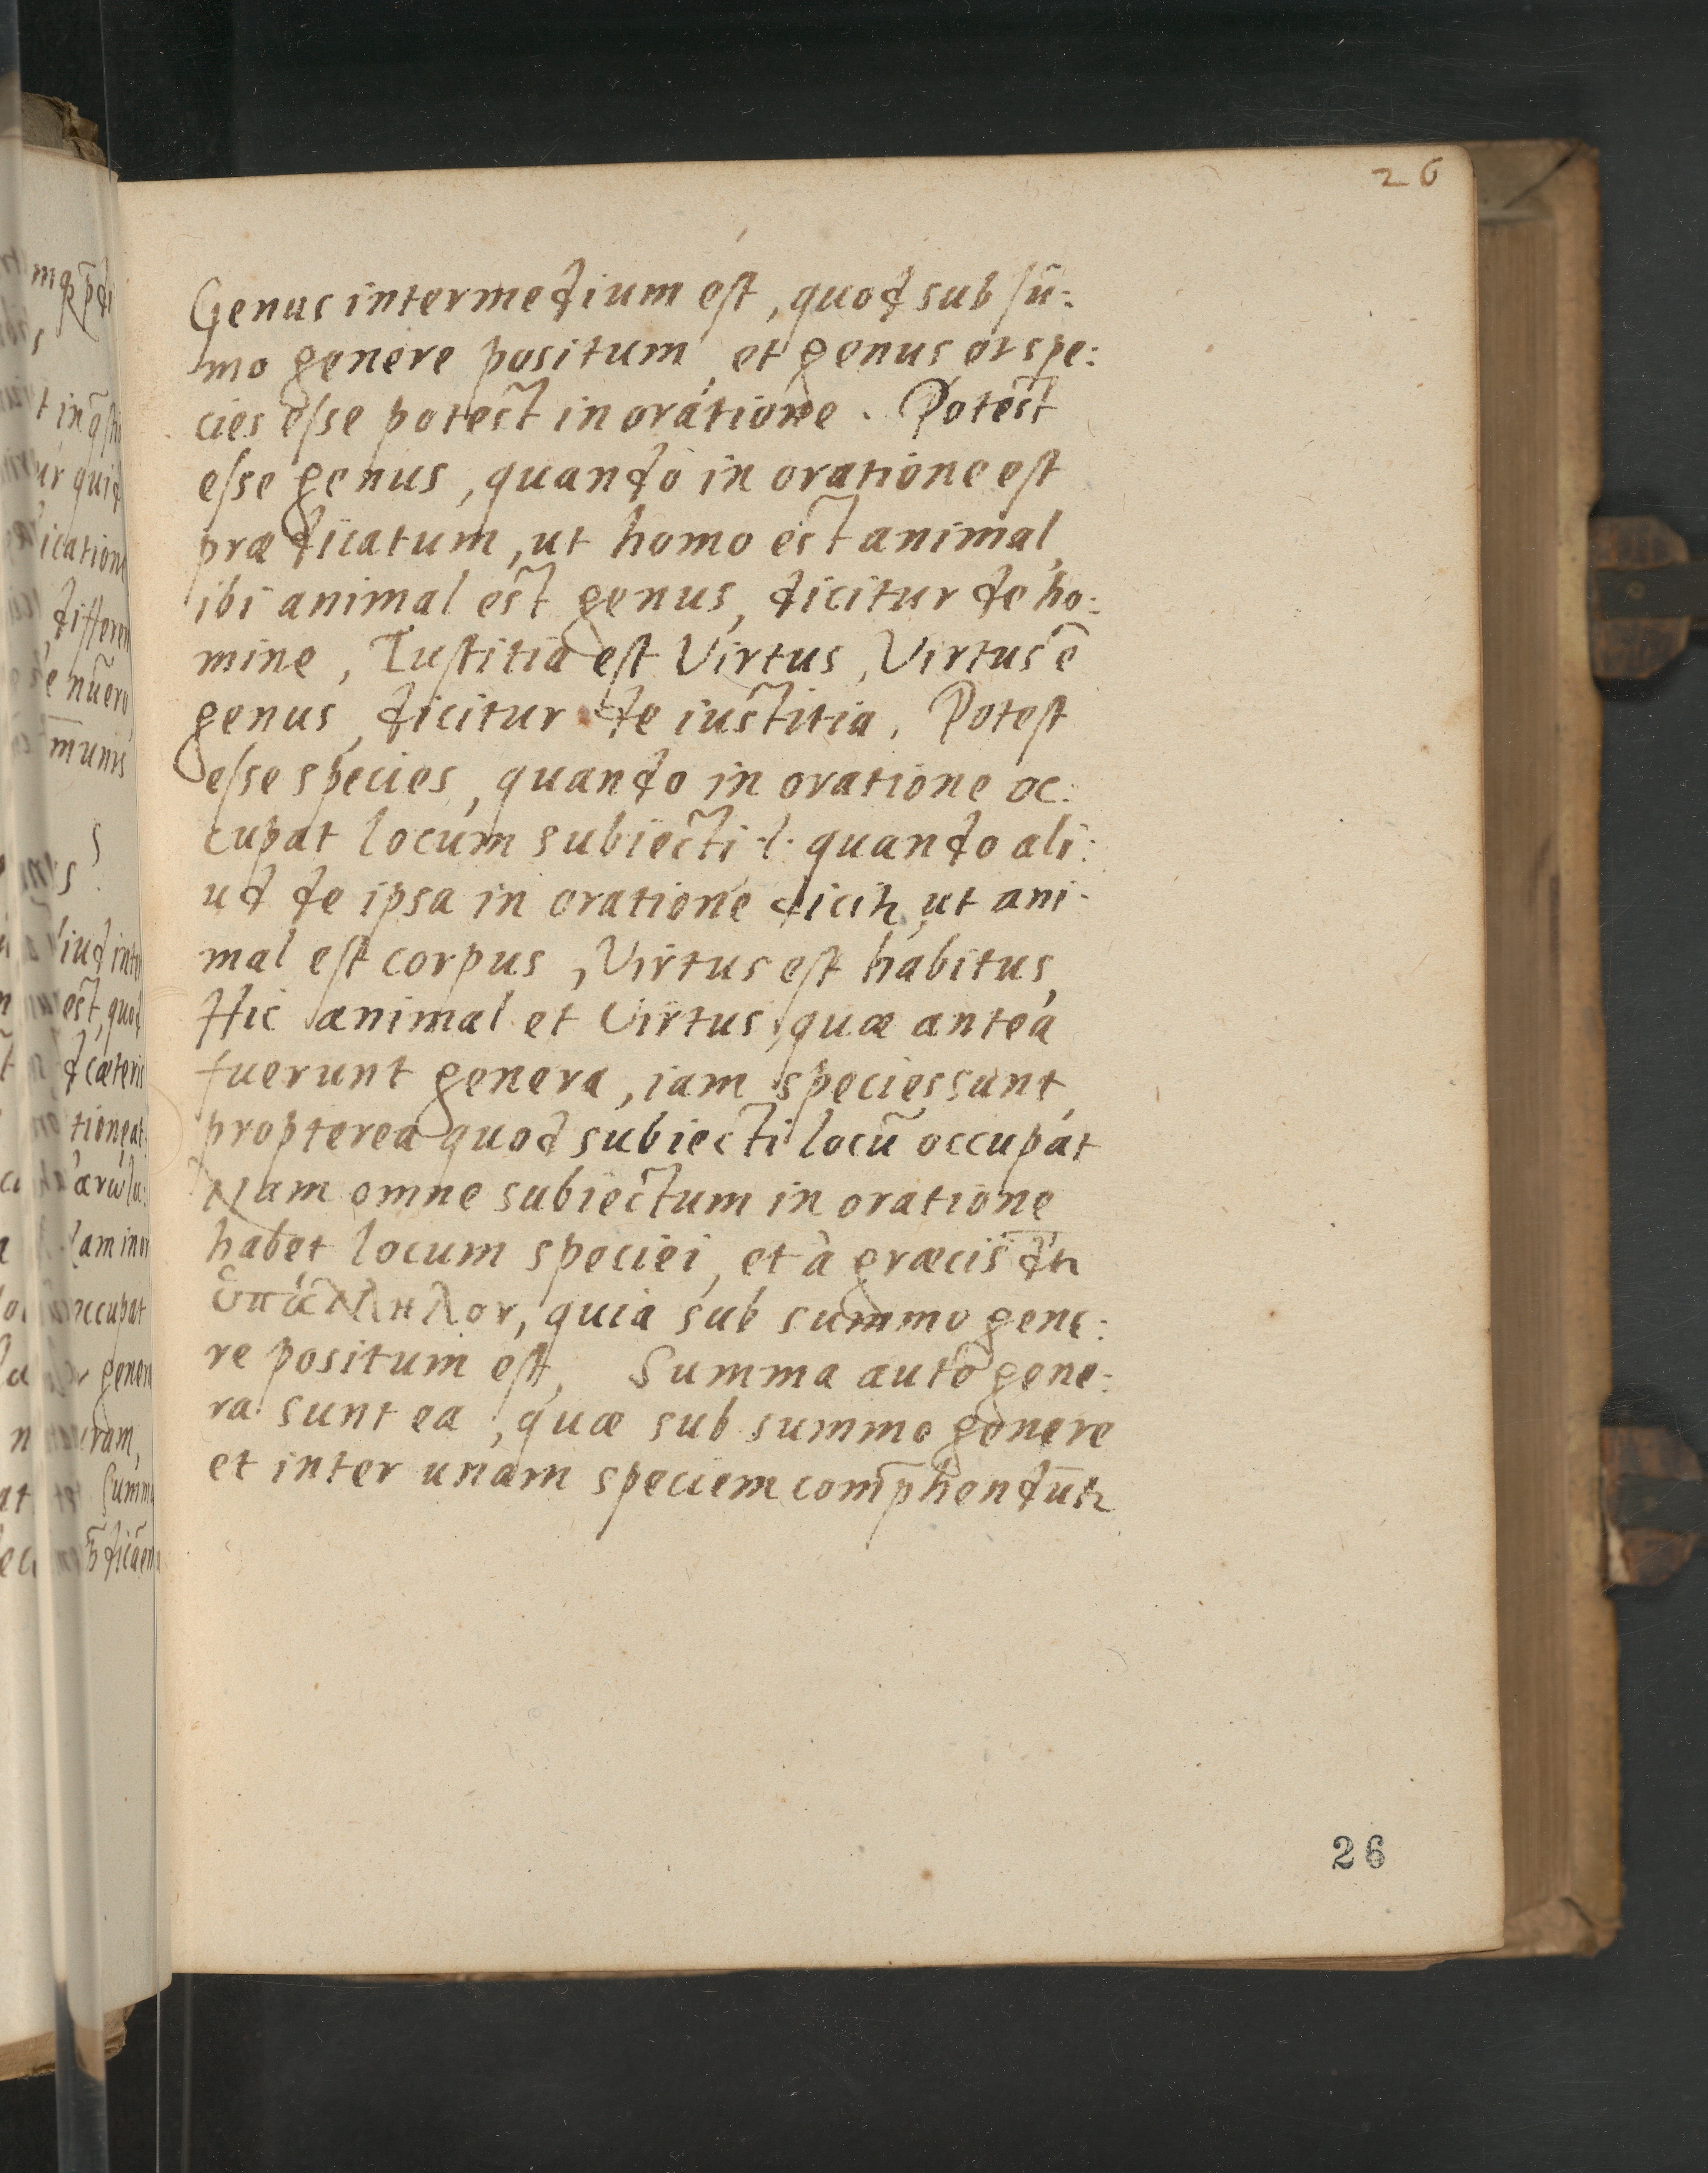 26
Genus intermedium est, quod sub sū:
mo genere positum, et genus et spe:
cies esse potest in oratione. Potest
esse genus, quando in oratione est
prædicatum, ut homo est animal,
ibi animal est genus, dicitur de ho:
mine, Iustitia est Virtus, Virtus ē
genus, dicitur de iustitia. Potest
esse species, quando in oratione oc:
cupat locum subiecti .i. quando ali:
ud de ipsa in oratione dicitr, ut ani-
mal est corpus, Virtus est habitus,
Hic animal et Virtus, quæ antea
fuerunt genera, iam species sunt,
propterea quod subiecti locū occupāt
Nam omne subiectum in oratione
habet locum speciei, et à græcis dr̄
quia sub summo gene:
re positum est, Summa autē gene:
ra sunt ea, quæ sub summo genere
et inter unam speciem comp̄hendūtr
26